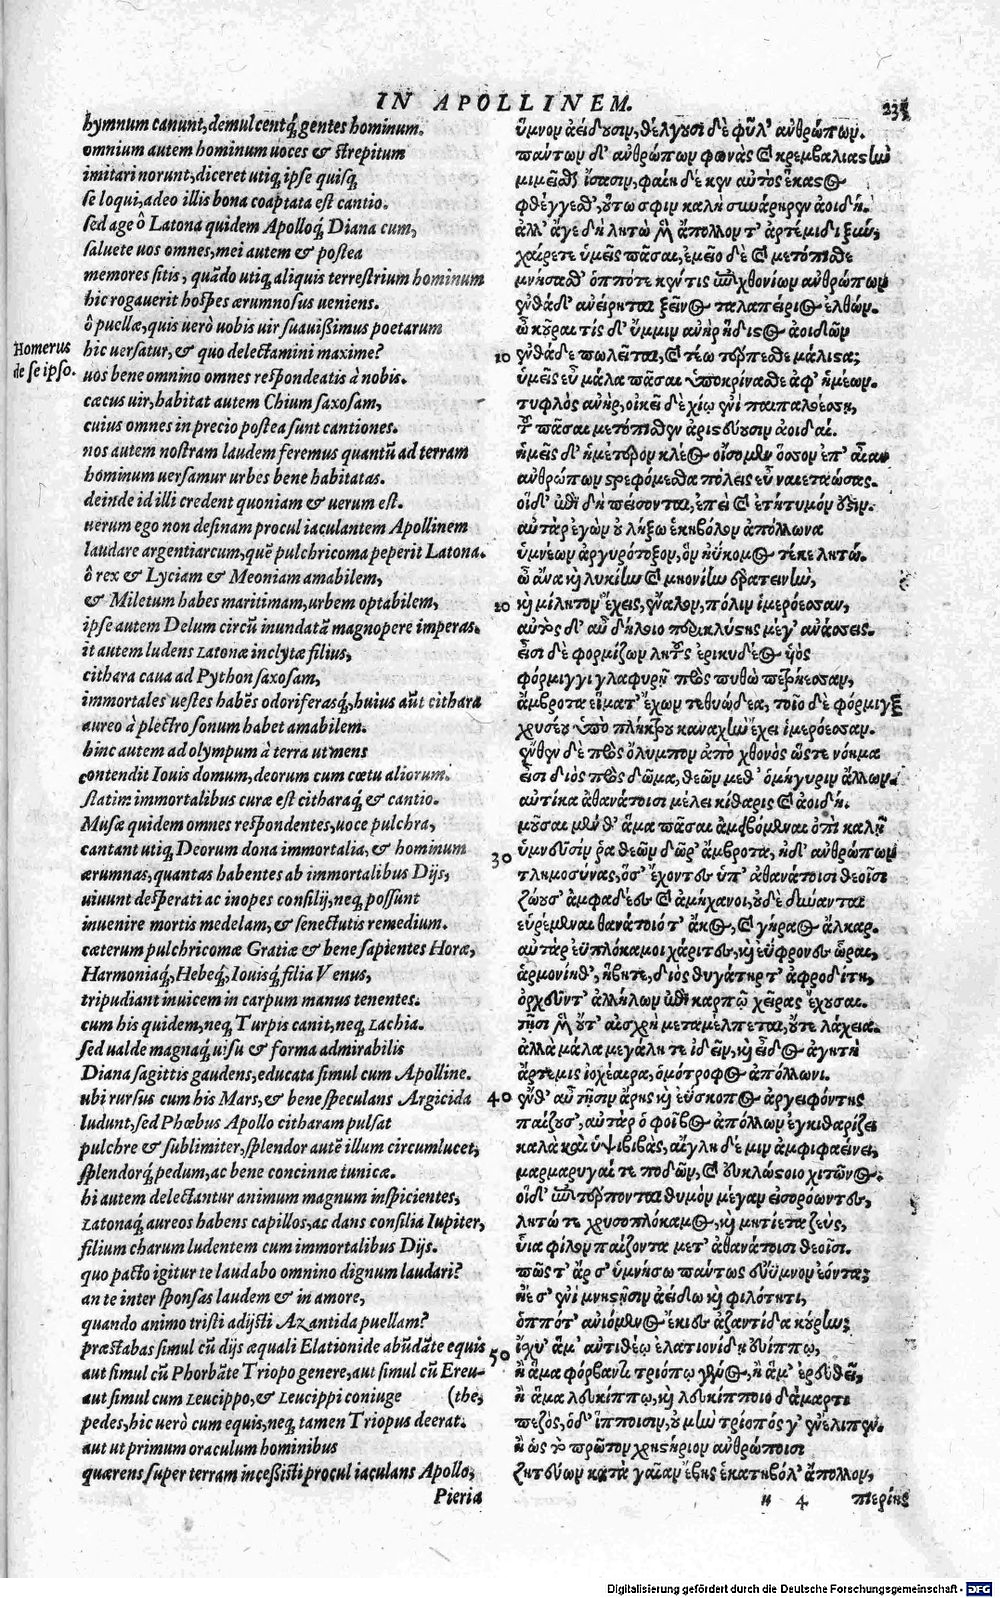 IN APOLLINEM. 235
hymnum canunt, demulcentq́; gentes hominum.
omnium autem hominum uoces & strepitum
imitari norunt, diceret utiq; ipse quisq;
se loqui, adeo illis bona coaptata est cantio.
sed age ô Latona quidem Apolloq́; Diana cum,
saluete uos omnes, mei autem & postea
memores sitis, quãdo utiq; aliquis terrestrium hominum
hic rogauerit hospes ærumnosus ueniens.
ô puellæ, quis uerò uobis uir suauißimus poetarum
Homerus
de se ipso.
hic uersatur, & quo delectamini maxime?
uos bene omnino omnes respondeatis à nobis.
cæcus uir, habitat autem Chium saxosam,
cuius omnes in precio postea sunt cantiones.
nos autem nostram laudem feremus quantũ ad terram
hominum uersamur urbes bene habitatas.
deinde id illi credent quoniam & uerum est.
uerum ego non desinam procul iaculantem Apollinem
laudare argentiarcum, quẽ pulchricoma peperit Latona.
ô rex & Lyciam & Meoniam amabilem,
& Miletum habes maritimam, urbem optabilem,
ipse autem Delum circũ inundatã magnopere imperas.
it autem ludens Latonæ inclytæ filius,
cithara caua ad Python saxosam,
immortales uestes habẽs odoriferasq́;, huius aũt cithara
aureo à plectro sonum habet amabilem.
hinc autem ad olympum à terra ut mens
contendit Iouis domum, deorum cum cœtu aliorum.
statim immortalibus curæ est citharaq́; & cantio.
Musæ quidem omnes respondentes, uoce pulchra,
cantant utiq; Deorum dona immortalia, & hominum
ærumnas, quantas habentes ab immortalibus Dijs,
uiuunt desperati ac inopes consilij, neq; possunt
inuenire mortis medelam, & senectutis remedium.
cæterum pulchricomæ Gratiæ & bene sapientes Horæ,
Harmoniaq́;, Hebeq́;, Iouisq́; filia Venus,
tripudiant inuicem in carpum manus tenentes.
cum his quidem, neq; Turpis canit, neq; Lachia.
sed ualde magnaq́; uisu & forma admirabilis
Diana sagittis gaudens, educata simul cum Apolline.
ubi rursus cum his Mars, & bene speculans Argicida
ludunt, sed Phœbus Apollo citharam pulsat
pulchre & sublimiter, splendor autẽ illum circumlucet,
splendorq́; pedum, ac bene concinnæ tunicæ.
hi autem delectantur animum magnum inspicientes,
Latonaq́; aureos habens capillos, ac dans consilia Iupiter,
filium charum ludentem cum immortalibus Dijs.
quo pacto igitur te laudabo omnino dignum laudari?
an te inter sponsas laudem & in amore,
quando animo tristi adijsti Azantida puellam?
præstabas simul cũ dijs æquali Elationide abũdãte equis
aut simul cũ Phorbãte Triopo genere, aut simul cũ Ereu-
aut simul cum Leucippo, & Leucippi coniuge (the,
pedes, hic uerò cum equis, neq; tamen Triopus deerat.
aut ut primum oraculum hominibus
quærens super terram inceßisti procul iaculans Apollo,
Pieria
ὕμνον ἀείδουσιν, θέλγουσι δὲ φῦλ' ἀνθρώπων.
πάντων δ' ἀνθρώπων φωνὰς καὶ κρεμβαλιαστὺν
μιμεῖσθ' ἴσασιν, φαίη δέ κεν αὐτὸς ἕκαστος
φθέγγεσθ', οὕτω σφιν καλὴ συνάρηρεν ἀοιδή.
ἀλλ' ἄγε δὴ λητὼ μὲν ἄπολλον τ' ἀρτέμιδι ξὺν,
χαίρετε ὑμεῖς πᾶσαι, ἐμεῖο δὲ καὶ μετόπισθε
μνήσασθ' ὁππότε κέν τις ἐπιχθονίων ἀνθρώπων
ἐνθάδ' ἀνείρηται ξεῖνος ταλαπείριος ἐλθών.
ὦ κοῦραι τίς δ' ὔμμιν ἀνὴρ ἥδιστος ἀοιδῶν
10 ἐνθάδε πωλεῖται, καὶ τέῳ τέρπεσθε μάλιστα;
ὑμεῖς εὖ μάλα πᾶσαι ὑποκρίνασθε ἀφ' ἡμέων.
τυφλὸς ἀνὴρ, οἰκεῖ δὲ χίῳ ἐνὶ παιπαλοέσσῃ,
τοῦ πᾶσαι μετόπισθεν ἀριστεύουσιν ἀοιδαί.
ἡμεῖς δ' ἡμέτερον κλέος οἴσομεν ὅσσον ἐπ' αἶαν
ἀνθρώπων στρεφόμεσθα πόλεις εὖ ναιεταώσας.
οἱ δ' ἐπὶ δὴ πείσονται, ἐπεὶ καὶ ἐτήτυμόν ἐστιν.
αὐτὰρ ἐγὼν οὐ λήξω ἑκηβόλον ἀπόλλωνα
ὑμνέων ἀργυρότοξον, ὃν ἠΰκομος τέκε λητώ.
ὦ ἄνα καὶ λυκίην καὶ μηονίην ἐρατεινὴν,
20 καὶ μίλητον ἔχεις, ἔναλον, πόλιν ἱμερόεσσαν,
αὐτὸς δ' αὖ δήλοιο περικλύστης μέγ' ἀνάσσεις.
εἶσι δὲ φορμίζων λητοῦς ἐρικυδέος υἱὸς
φόρμιγγι γλαφυρῇ πρὸς πυθὼ πετρήεσσαν,
ἄμβροτα εἵματ' ἔχων τεθυώδεα, τοῖο δὲ φόρμιγξ
χρυσέου ὑπὸ πλήκτρου καναχὴν ἔχει ἱμερόεσσαν.
ἔνθεν δὲ πρὸς ὄλυμπον ἀπὸ χθονὸς ὥστε νόημα
εἶσι διὸς πρὸς δῶμα, θεῶν μεθ' ὁμήγυριν ἄλλων.
αὐτίκα ἀθανάτοισι μέλει κίθαρις καὶ ἀοιδή.
μοῦσαι μέν θ' ἅμα πᾶσαι ἀμειβόμεναι ὀπὶ καλῇ
30 ὑμνεῦσίν ῥα θεῶν δῶρ' ἄμβροτα, ἠδ' ἀνθρώπων
τλημοσύνας, ὅσ' ἔχοντες ὑπ' ἀθανάτοισι θεοῖσι
ζώουσ' ἀμφαδέες καὶ ἀμήχανοι, οὐδὲ δύνανται
εὑρέμεναι θανάτοιό τ' ἄκος, καὶ γήραος ἄλκαρ.
αὐτὰρ ἐϋπλόκαμοι χάριτες, καὶ ἐΰφρονες ὧραι,
ἁρμονίηθ', ἥβητε, διὸς θυγάτηρ τ' ἀφροδίτη,
ὀρχεῦντ' ἀλλήλων ἐπὶ καρπῷ χεῖρας ἔχουσαι.
τῇσι μὲν οὔτ' αἰσχρὴ μεταμέλπεται, οὔτε λάχεια.
ἀλλὰ μάλα μεγάλη τε ἰδεῖν, καὶ εἶδος ἀγητὴ
ἄρτεμις ἰοχέαιρα, ὁμότροφος ἀπόλλωνι.
40 ἔνθ' αὖ τῇσιν ἄρης καὶ εὔσκοπος ἀργειφόντης
παίζουσ', αὐτὰρ ὁ φοῖβος ἀπόλλων ἐγκιθαρίζει
καλὰ καὶ ὕψι βιβὰς, αἴγλη δέ μιν ἀμφιφαείνει,
μαρμαρυγαί τε ποδῶν, καὶ ἐυκλώστοιο χιτῶνος.
οἱ δ' ἐπιτέρπονται θυμὸν μέγαν εἰσορόωντες,
λητώ τε χρυσοπλόκαμος, καὶ μητίετα ζεὺς,
υἷα φίλον παίζοντα μετ' ἀθανάτοισι θεοῖσι.
πῶς τ' ἄρ σ' ὑμνήσω πάντως εὔϋμνον ἐόντα;
ἠέ σ' ἐνὶ μνηστῇσιν ἀείδω καὶ φιλότητι,
ὁππότ' ἀνιόμενος ἔκιες ἀζαντίδα κούρην;
50 ἴσχυ' ἅμ' ἀντιθέῳ ἐλατιονίδῃ εὐίππῳ,
ἢ ἅμα φόρβαντι τριόπῳ γένος, ἢ ἅμ' ἐρευθεῖ,
ἢ ἅμα λευκίππῳ, καὶ λευκίπποιο δάμαρτι
πεζὸς, ὁ δ' ἵπποισιν, οὐ μὴν τρίοπός γ' ἐνέλιπεν.
ἢ ὡς τὸ πρῶτον χρηστήριον ἀνθρώποισι
ζητεύων κατὰ γαῖαν ἔβης ἑκατηβόλ' ἄπολλον,
n 4 πιερίης
Digitalisierung gefördert durch die Deutsche Forschungsgemeinschaft - DFG